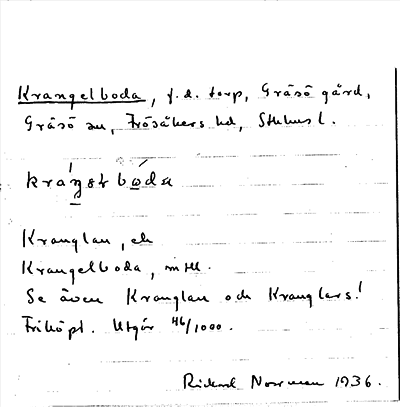 Krangelboda, f.d. torp, Gräsö gård,
Gräsö sn, Frösåkers hd, Sthlms l.
Kranglan, ek
Krangelboda, mtll.
Se även Kranglan och Kranglars!
Friköpt. Utgör 46/1000.
Rickard Norrman 1936.